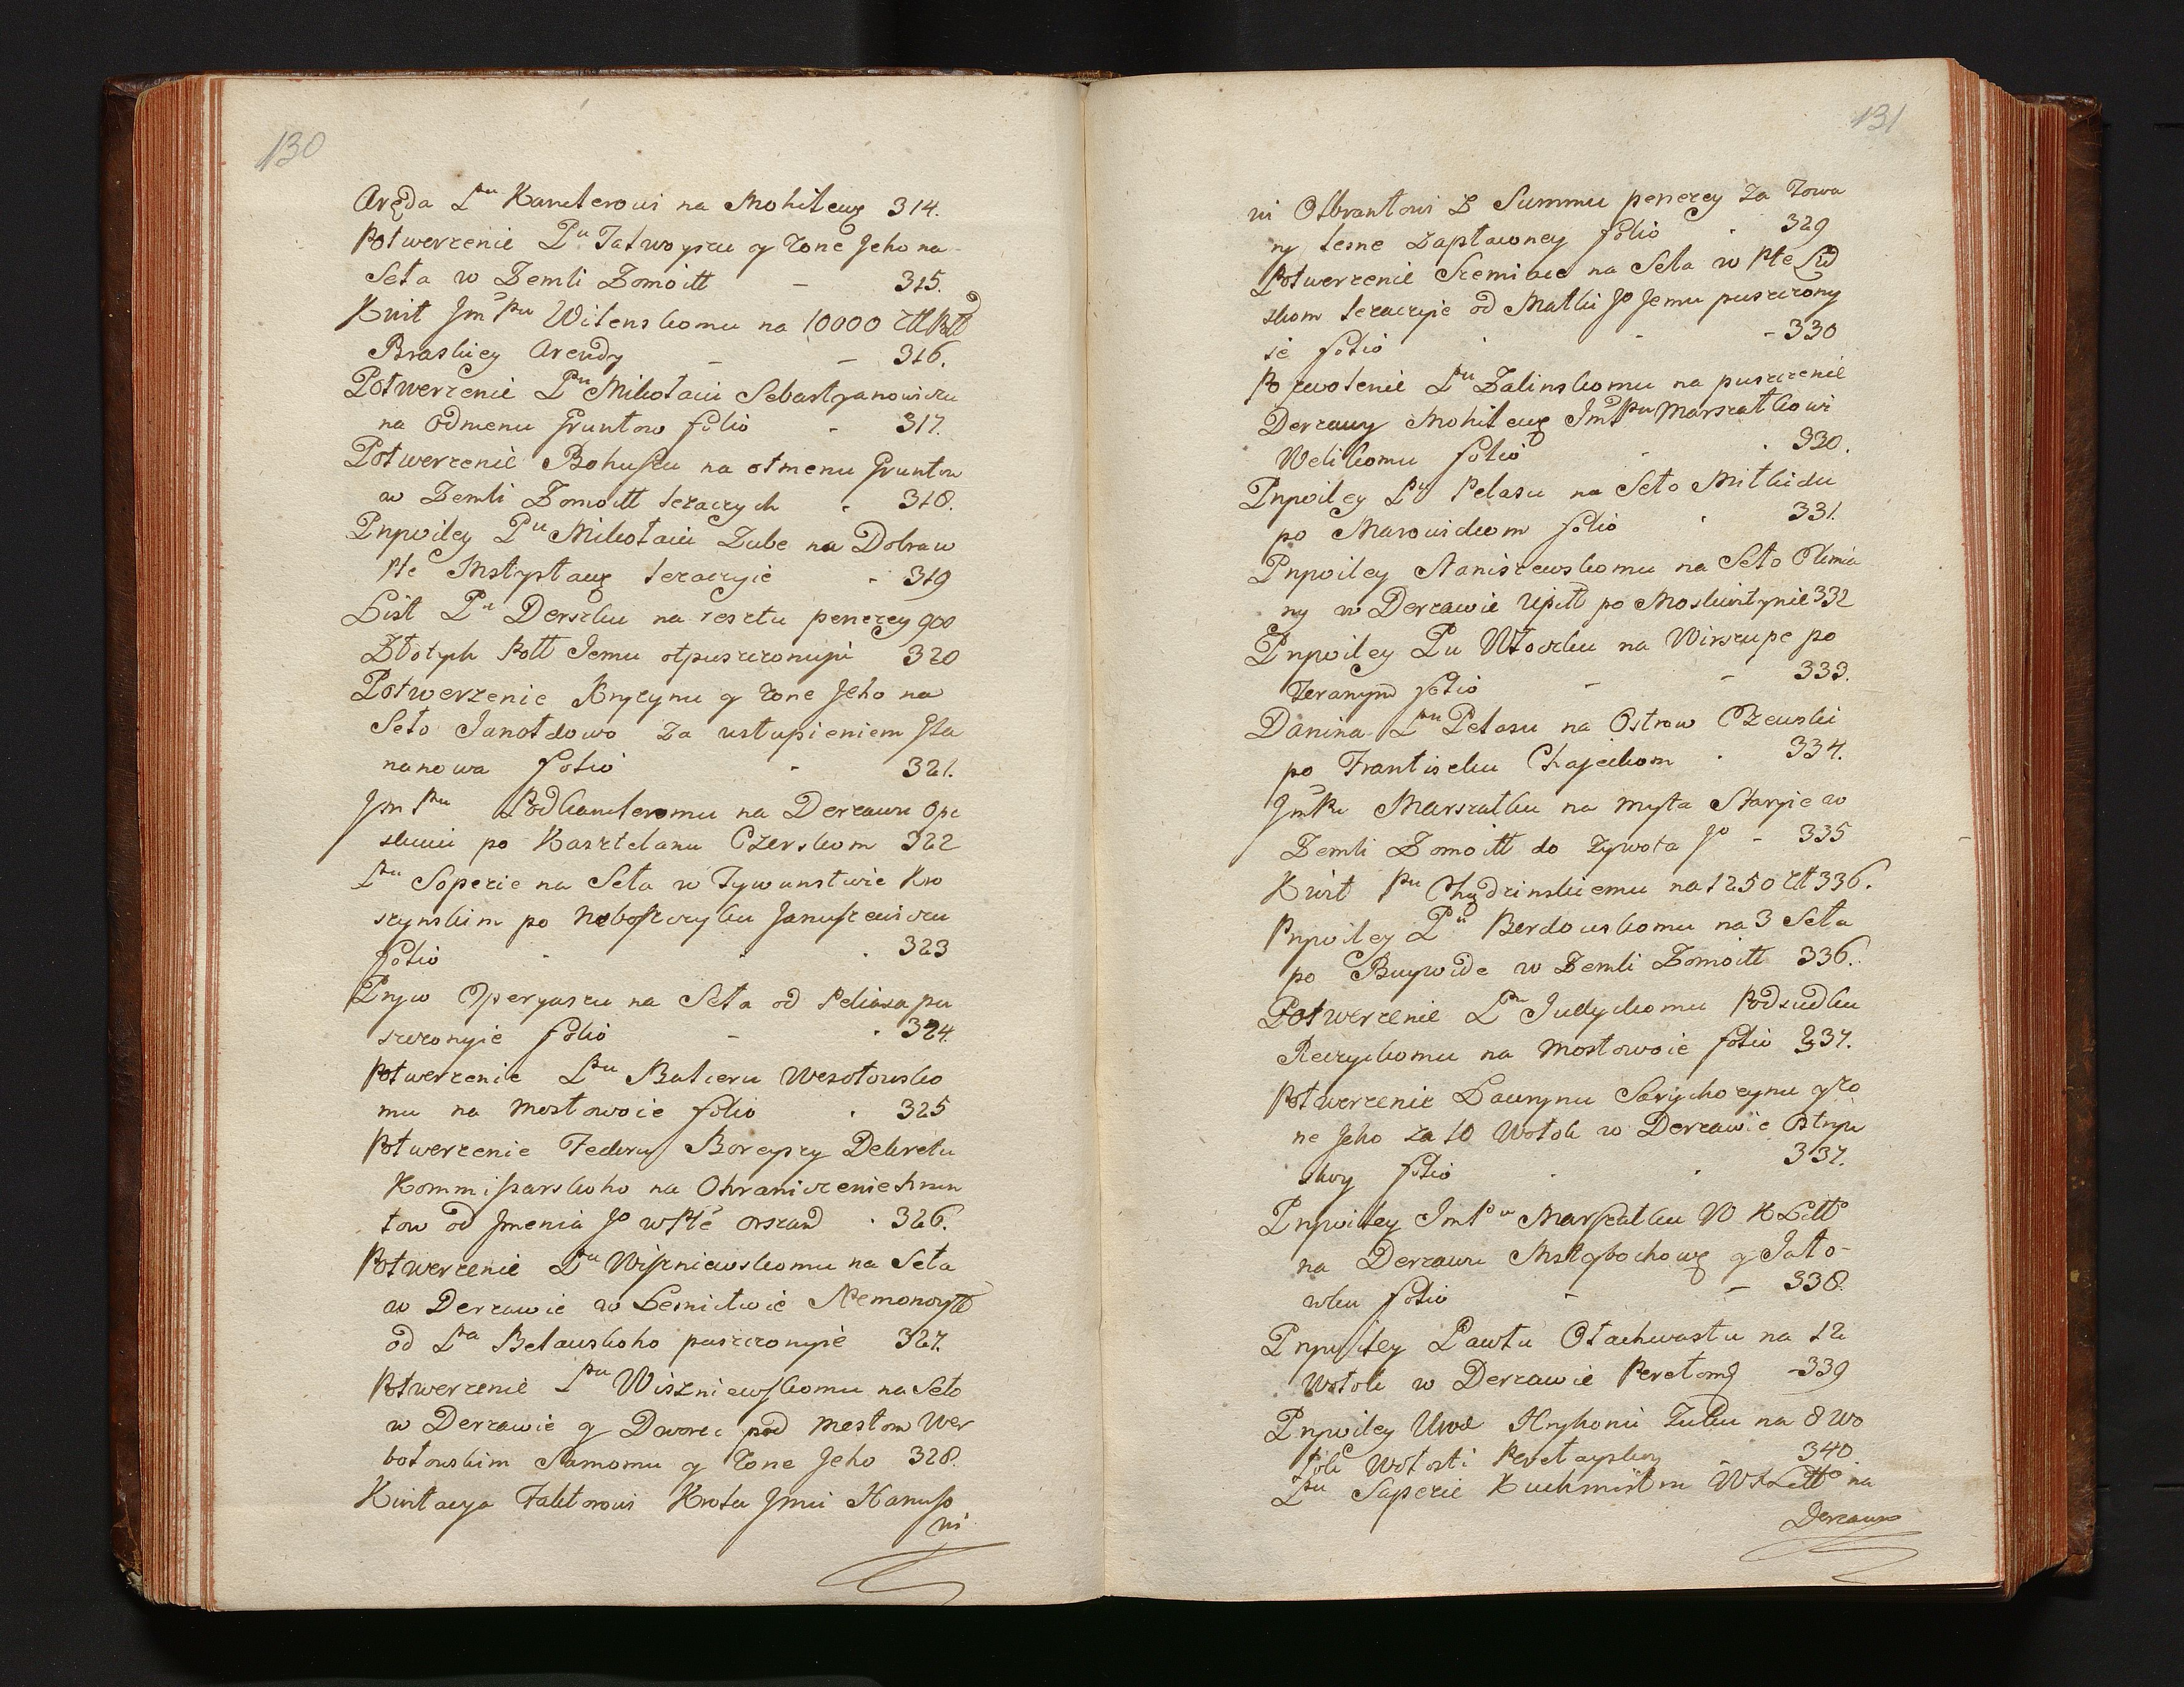 130
Aręda Pnu Kancterowi na Mohilewę 314.
Potwerzenie Pu Jatwoyszu y żone Jeho na
Seła w Zemli Żomoitt – 315.
Kwit Jm Pnu Wilenskomu na 10000
Braskiey Arendy – – 316.
Potwerzenie Pnu Mikołaiu Sebastyanowiczu
na Odmenu Gruntow folio – 317.
Potwerzenie Bohuszu na otmenu Gruntow
w Zemli Żomoitt leżaczych . 318.
Prywiley Pu Mikołaiu Zube na Dobra w
Pte Mstysławę leżaczyie - 319
List Pu Derszku na resztu penezey 900
Złotych Poll Jemu otpuszczonuju 320
Potwerzenie Knyzynu y żone Jeho na
Seło Janołdowo za ustupieniem Sta
nanowa folio - 321.
Jm Pnu Podkancleromu na Derzawu Ope
skuiu po Kasztelanu Czerskom 322
Pnu Sopezie na Seła w Tywunstwie Kro
szynskim po Neboszczyku Januszewiczu
folio . . . 323
Pryw Operyaszu na Seła od Peliasa pu
szczonyie folio – . 324.
Potwerzenie Pnu Butleru Wesołowsko
mu na mostowoie folio . 325
Potwerzenie Fedoru Boreyszy Dekretu
Kommiszarskoho na Ohraniczenie hrun
tow od Jmenia Jo w Pte orszand . 326.
Potwerzenie Pu Wiszniewskomu na Seła
w Derzawie w Lesnictwie Nemonoyttd
od Pa Beławskoho puszczonyie 327.
Potwerzenie Pnu Wiszniewskomu na Seło
w Derzawie y Dworec pod mestom Wer
bołowskim Samomu y żone Jeho 328.
Kwitacya Faktorowi Krola Jmci Hanuso
wi
131
wi Olbrantowi Z Summu penezey za Towa
ry lesne Zapławoney folio . 329
Potwerzenie Szemiace na Seła w Pte Lid
skom leżaczyie od Matki Jo Jemu puszczony
ie folio . - - 330
Pozwolenie Pu Zalinskomu na puszczenie
Derzawy Mohilewę Jm Pnu Marszałkowi
Welikomu folio - . 330.
Prywiley Pu Pelasu na Seło Mitkidu
po Marowidzom folio . 331.
Prywiley Staniszewskomu na Seło Olmia
ny w Derzawie Upitt po Moskwitynie 332
Prywiley Pu Włoczku na Wirszupe po
Teranym folio – – 333.
Danina Pnu Pelasu na Ostrow Czewski
po Frantiszku Chajeckom . 334.
Jm Pu Marszałku na myta Staryie w
Zemli Żomoitt do żywota Jo - 335
Kwit Pu Chądzinskiemu na 1250 336.
Prywiley Pu Berdowskomu na 3 Seła
po Buywide w Zemli Żomoitt 336.
Potwerzenie Pu Judyckomu Podsudku
Reczyckomu na Mostowoie folio 337.
Potwerzenie Ławrynu Sarychozynu y żo
ne Jeho za 10 Wołok w Derzawie Ostryn
skoy folio . . 337.
Prywiley Jm Pu Marszałku W K Litto
na Derzawu Mstybochowę y Jało-
wku folio - – 338.
Prywiley Pawłu Otachwastu na 12
Wołok w Derzawie Perełomę - 339
Prywiley Hryhoriu Zuku na 8 Wo
łok Wołosti Perełayskey 340
Pnu Sapezie Kuchmistru W K Litto na
Derzawu